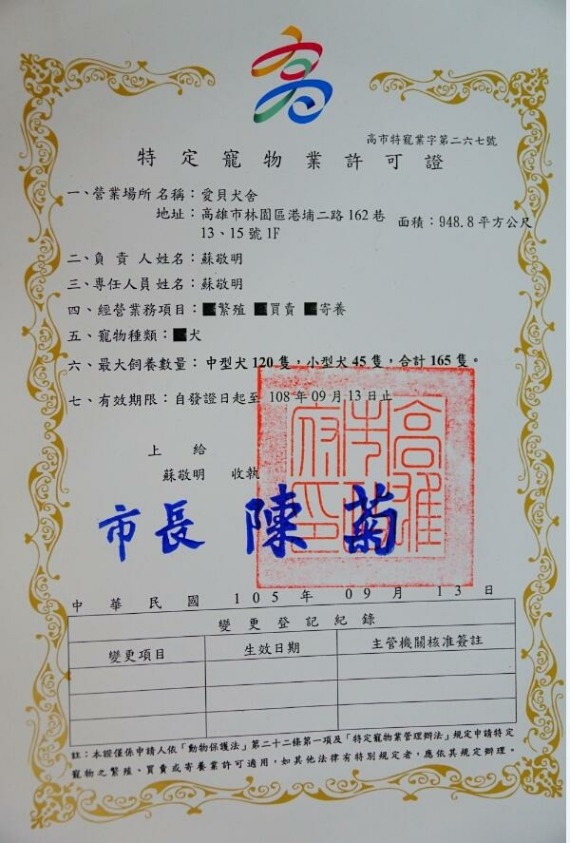 高市特寵業字第二六七號
特定寵物業許可證
一、營業場所名稱：愛貝犬舍
地址：高雄市林園區港埔二路162巷
13、15號1F
面積：948.8平方公尺
二、負責人姓名：蘇敬明
三、專任人員姓名：蘇敬明
四、經營業務項目：■繁殖 ■買賣 ■寄養
五、寵物種類：■犬
六、最大飼養數量：中型犬120隻，小型犬45隻，合計165隻。
七、有效期限：自發證日起至 108年09月13日止
上給
蘇敬明 收執
高雄市政府印
市長 陳菊
中華民國105年09月13日
變更登記紀錄
變更項目 生效日期 主管機關核准簽註
註：本證僅係申請人依「動物保護法」第二十二條第一項及「特定寵物業管理辦法」規定申請特定
寵物之繁殖、買賣或寄養業許可適用，如其他法律有特別規定者，應依其規定辦理。